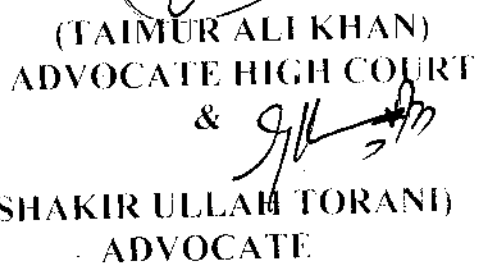 (TAIMUR ALI KHAN)
ADVOCATE HIGH COURT
&
SHAKIR ULLAH TORANI)
ADVOCATE